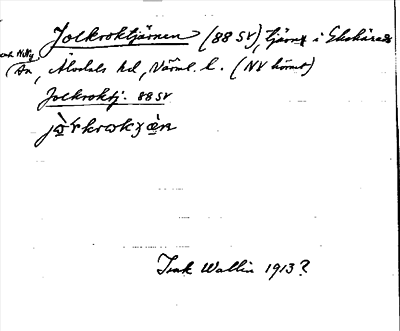 Jolkroktjärnen (88 SV), tjärn i Ekshärads
och Nitty
An, Älvdals hd, Värml. l. (NV hörnet)
Jolkroktj. 88 SV
Isak Wallin 1913?